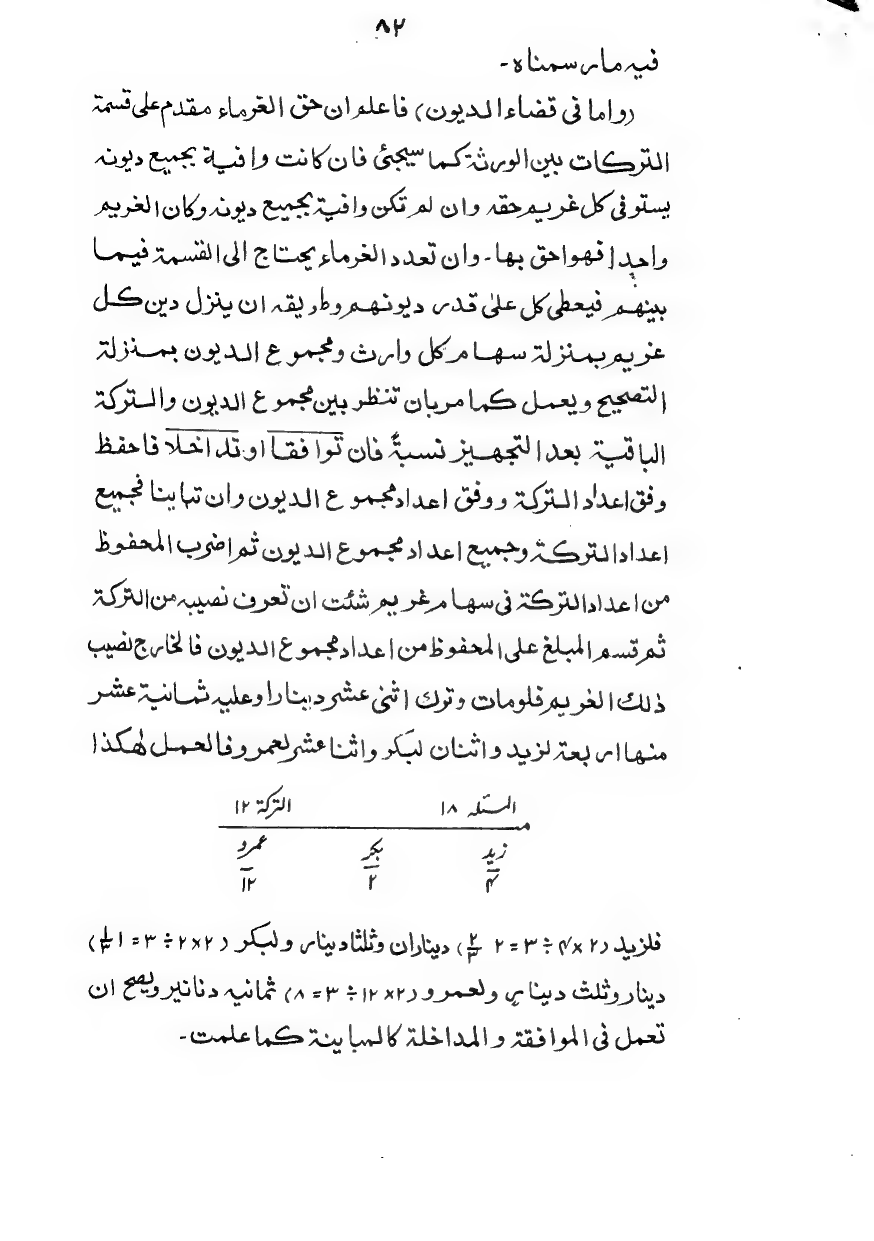 ٨٢
فيه ما رسمناه -
(واما فى قضاء الديون) فاعلم ان حق الغرماء مقدم على قسمة
التركات بين الورثة كما سيجئ فان كانت وافية بجميع ديونه
يستوفى كل غريم حقه وان لم تكن وافية بجميع ديونه وكان الغريم
واحدا فهو احق بها - وان تعدد الغرماء يحتاج الى القسمة فيما
بينهم فيعطى كل على قدر ديونهم وطريقه ان ينزل دين كل
غريم بمنزلة سهام كل وارث ومجموع الديون بمنزلة
التصحيح ويعمل كما مر بان تنظر بين مجموع الديون والتركة
الباقية بعد التجهيز نسبةً فان توافقا او تداخلا فاحفظ
وفق اعداد التركة ووفق اعداد مجموع الديون وان تباينا فجميع
اعداد التركة وجميع اعداد مجموع الديون ثم اضرب المحفوظ
من اعداد التركة فى سهام غريم شئت ان تعرف نصيبه من التركة
ثم قسم المبلغ على المحفوظ من اعداد مجموع الديون فالخارج نصيب
ذلك الغريم فلومات وترك اثنى عشر دينارا وعليه ثمانية عشر
منها اربعة لزيد واثنان لبكر واثنا عشر لعمرو فالعمل هكذا
المسئله ١٨ التركة ١٢
زيد بكر عمرو
۴ ٢ ١٢
فلزيد (٢×۴÷٣=٢ ٢/٣) ديناران وثلثا دينار ولبكر (٢×٢÷٣=١ ١/٣)
دينار وثلث دينار ولعمرو (٢×١٢÷٣=٨) ثمانيه دنانير ويصح ان
تعمل فى الموافقة والمداخلة كالمباينة كما علمت -